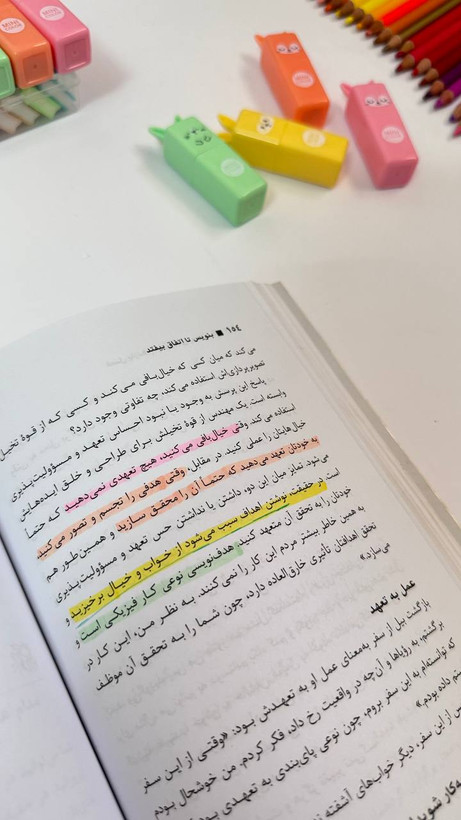 ۱۵۴ ■ بنویس تا اتفاق بیفتد
می‌کند که میان کسی که خیال‌بافی می‌کند و کسی که از قوهٔ تخیل
تصویرپردازی‌اش استفاده می‌کند، چه تفاوتی وجود دارد؟
پاسخ این پرسش به وجود یا نبود احساس تعهد و مسؤولیت‌پذیری
وابسته است. یک مهندس از قوهٔ تخیلش برای طراحی و خلق ایده‌هایش
استفاده می‌کند. وقتی خیال‌بافی می‌کنید، هیچ تعهدی نمی‌دهید که حتماً
خیال‌هایتان را عملی کنید. در مقابل، وقتی هدفی را تجسم و تصور می‌کنید
به خودتان تعهد می‌دهید که حتماً آن را محقق سازید و همین‌طور هم
می‌شود. تمایز میان این دو، داشتن یا نداشتن حس تعهد و مسؤولیت‌پذیری
است. در حقیقت نوشتن اهداف سبب می‌شود از خواب و خیال برخیزید و
خودتان را به تحقق آن متعهد کنید. هدف‌نویسی نوعی کار فیزیکی است و
به همین خاطر بیشتر مردم این کار را نمی‌کنند. به نظر من، این کار در
تحقق اهدافتان تأثیری خارق‌العاده دارد، چون شما را به تحقق آن موظف
می‌سازد.»
عمل به تعهد
بازگشت بیل از سفر به‌معنای عمل او به تعهدش بود: «وقتی از این سفر
برگشتم، به رؤیاها و آن‌چه در واقعیت رخ داد، فکر کردم. من خوشحال بودم
که توانسته‌ام به این سفر بروم، چون نوعی پای‌بندی به تعهدی بود
داده بودم.»
از این سفر، دیگر خواب‌های آشفته